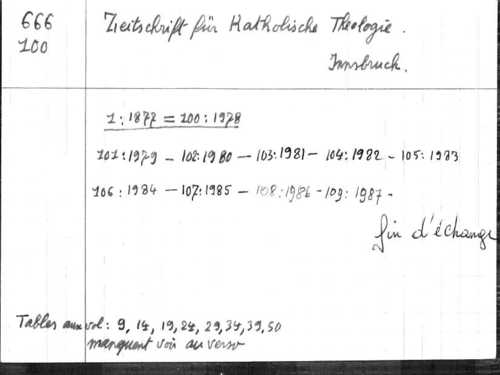 666
100
Zeitschrift für Katholische Theologie.
Innsbruck.
1:1877 = 100:1978
101:1979 - 102:1980 - 103:1981 - 104:1982 - 105:1983
106:1984 - 107:1985 - 108:1986 - 109:1987 -
fin d'échange
Tables aux vol: 9, 14, 19, 24, 29, 34, 39, 50
manquent voir au verso